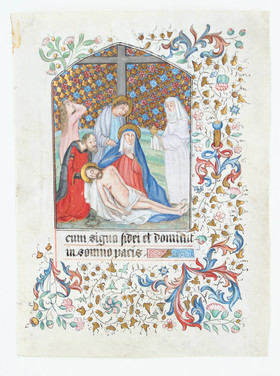 cum signo fidei et dormiut
in somno pacis